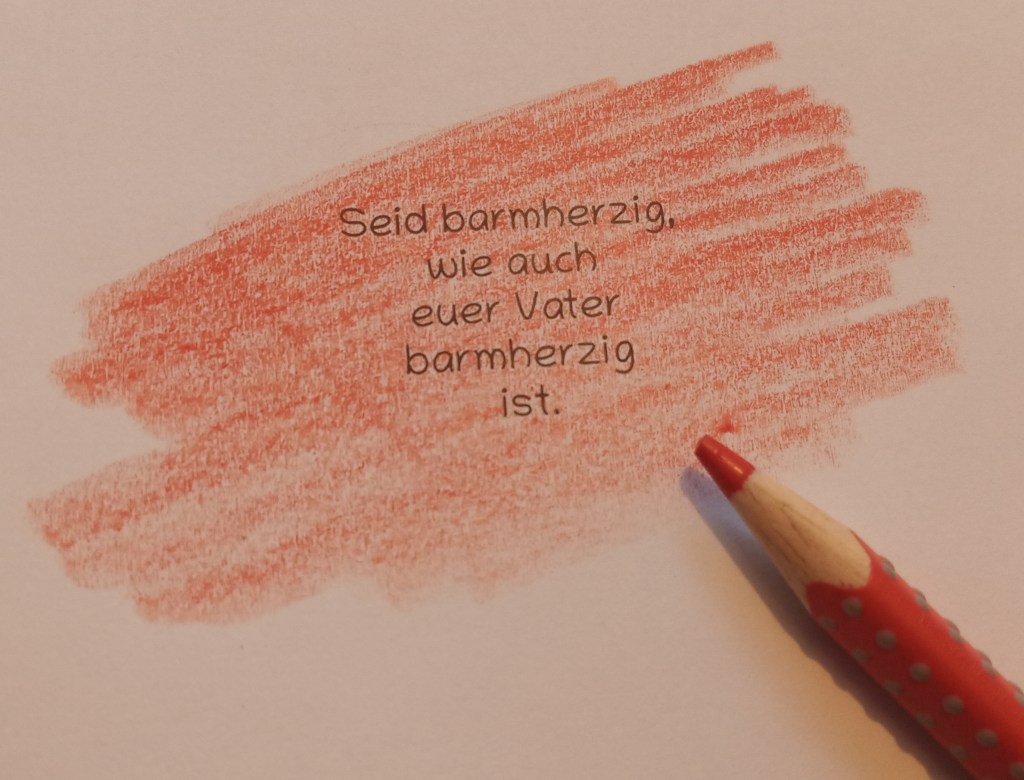 Seid barmherzig,
wie auch
euer Vater
barmherzig
ist.